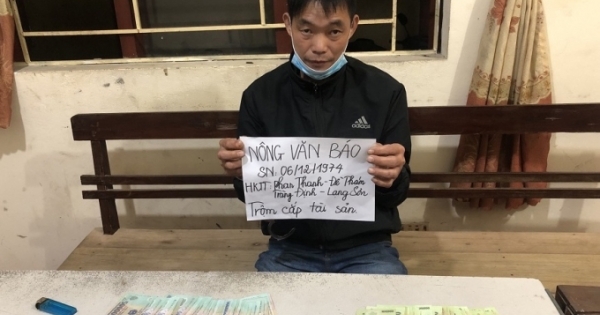 adidas
NÔNG VĂN BẢO
SN. 06/12/1974
HKTT: Phan Thanh - Đề Thám
Tràng Định - Lạng Sơn
Trộm cắp tài sản